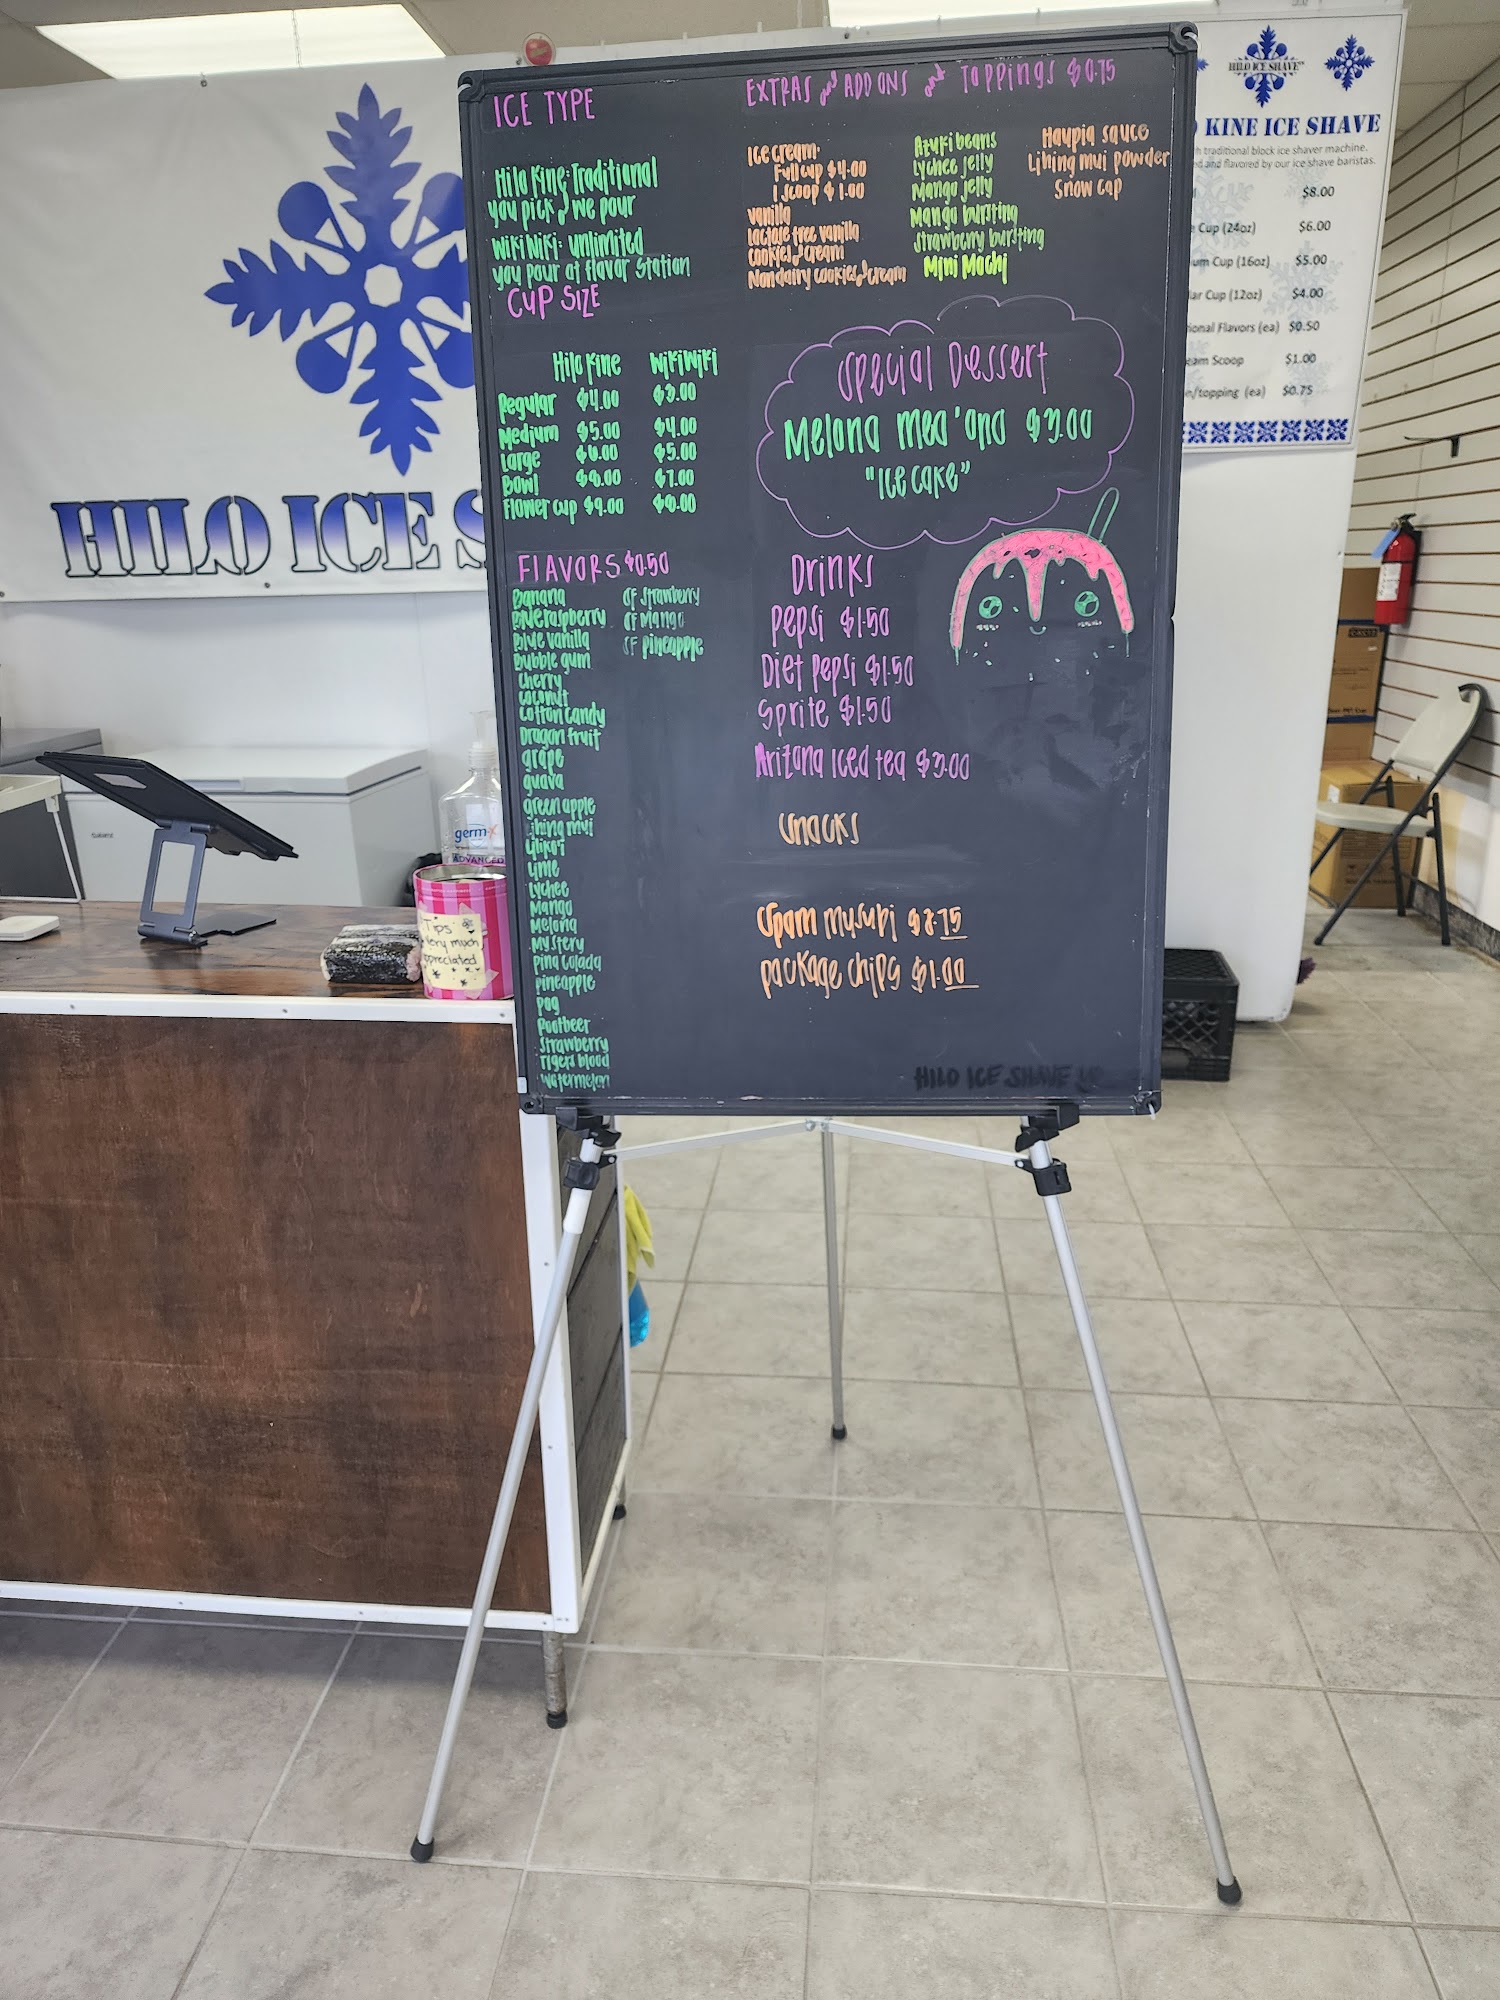 ICE TYPE
Hilo Kine: Traditional
you pick & we pour
WikiWiki: unlimited
you pour at flavor station
CUP SIZE
Hilo Kine WikiWiki
Regular $4.00 $3.00
Medium $5.00 $4.00
Large $6.00 $5.00
Bowl $8.00 $7.00
Flower cup $9.00 $8.00
FLAVORS $0.50
Banana
Blue raspberry
Blue vanilla
Bubble gum
cherry
coconut
cotton candy
Dragon fruit
grape
guava
green apple
lihing mui
Lilikoi
Lime
Lychee
Mango
Melona
Mystery
Pina colada
pineapple
POG
Rootbeer
Strawberry
Tigers blood
watermelon
SF Strawberry
SF Mango
SF pineapple
EXTRAS and ADD ONS and Toppings $0.75
Ice cream:
Full cup $4.00
1 scoop $1.00
vanilla
Lactose free vanilla
cookies & cream
Nondairy cookies & cream
Azuki beans
Lychee jelly
Mango jelly
Mango bursting
Strawberry bursting
Mini Mochi
Haupia sauce
Lihing mui powder
Snow cap
Special Dessert
Melona mea 'ono $3.00
"Ice cake"
Drinks
Pepsi $1.50
Diet pepsi $1.50
Sprite $1.50
Arizona Iced tea $3.00
Snacks
Spam musubi $3.75
package chips $1.00
HILO ICE SHAVE
HILO ICE S
germ-x
ADVANCED
Tips
Very much
appreciated
HILO ICE SHAVE
KINE ICE SHAVE
traditional block ice shaver machine.
and flavored by our ice shave baristas.
$8.00
Cup (24oz) $6.00
um Cup (16oz) $5.00
lar Cup (12oz) $4.00
ional Flavors (ea) $0.50
eam Scoop $1.00
n/topping (ea) $0.75